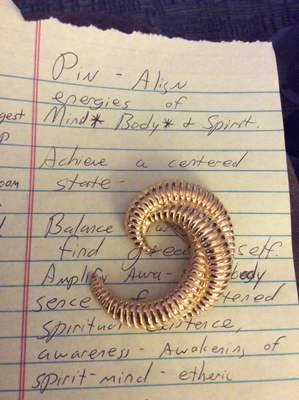 Pin - Align
energies of
Mind* Body* & Spirit.
Achieve a centered
state -
Balance
find self.
Amplify Awa- body
sence
spiritual
awareness - Awakening of
spirit-mind-etheric
gest